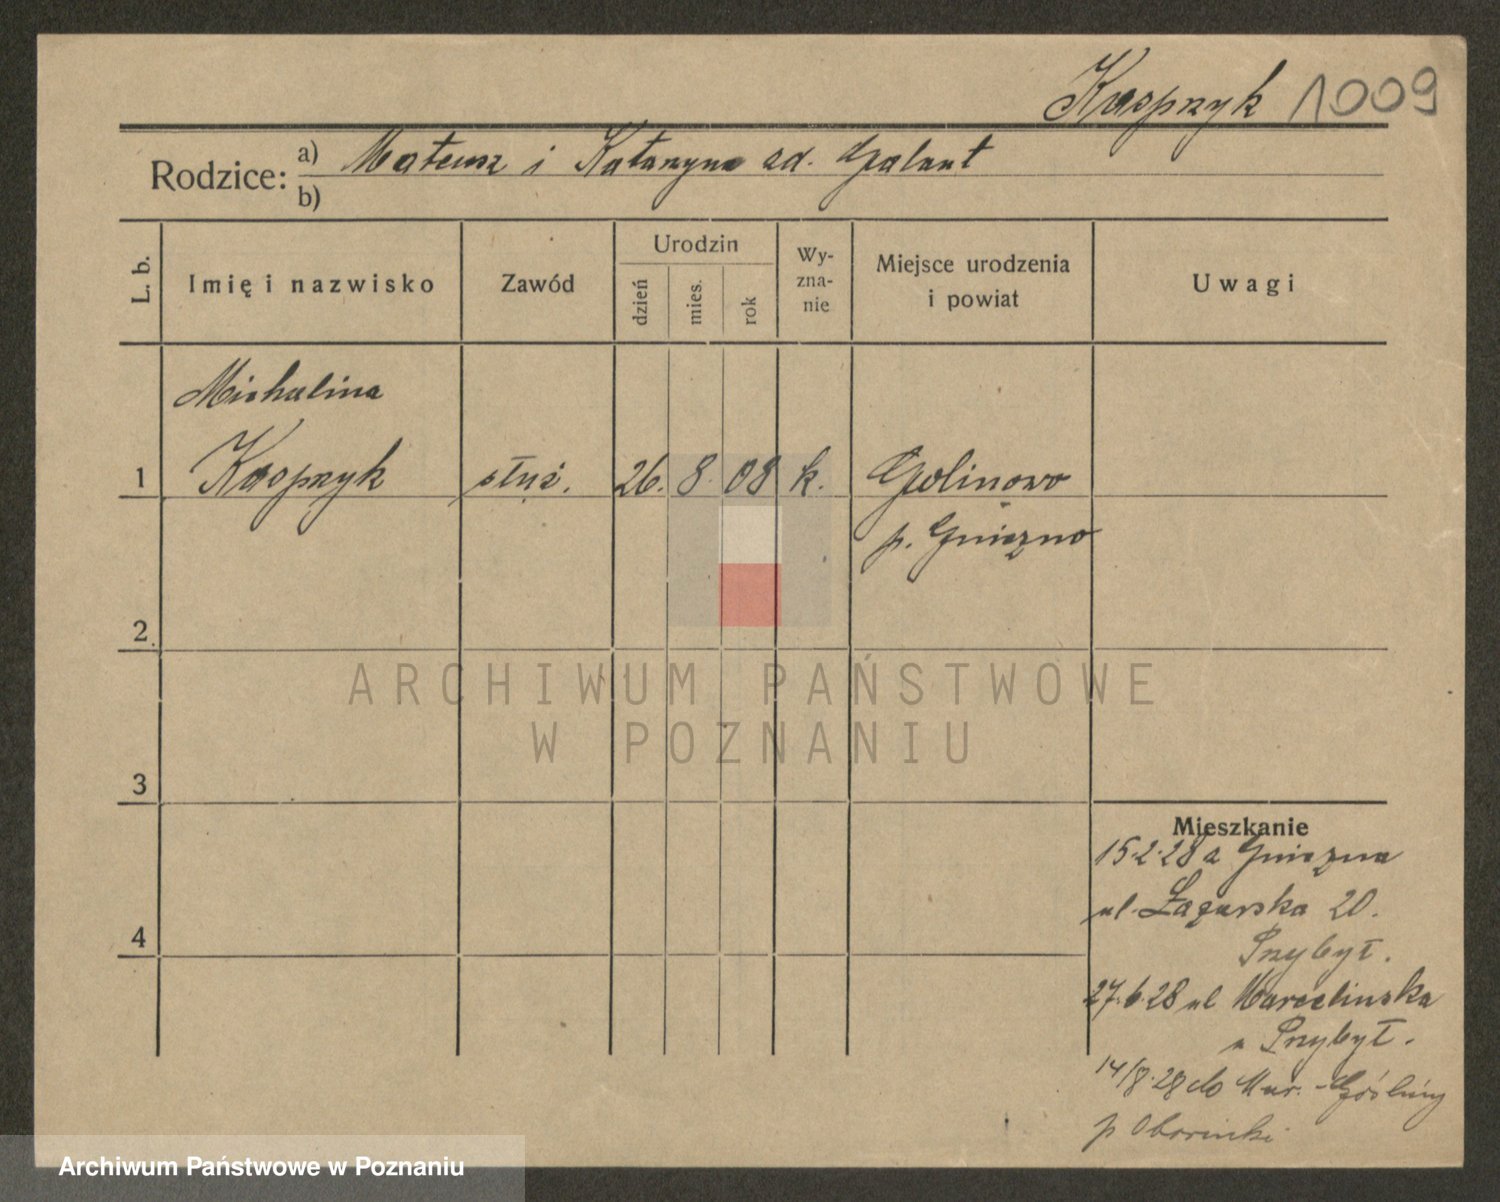 Kasprzyk 1009
Rodzice: a) Mateusz i Katarzyna zd. Galant
b)
L. b.
Imię i nazwisko
Zawód
Urodzin
dzień
mies.
rok
Wy-
zna-
nie
Miejsce urodzenia
i powiat
Uwagi
Michalina
1 Kasprzyk służ. 26. 8. 08 k. Golinowo
p. Gniezno
2
3
4
Mieszkanie
15.2.28 z Gniezna
ul. Łazarska 20.
Przybył.
27.6.28 ul Marcelińska
u Przybył.
14/8.28 do Mur. Gośliny
p Obornicki
ARCHIWUM PAŃSTWOWE
W POZNANIU
Archiwum Państwowe w Poznaniu